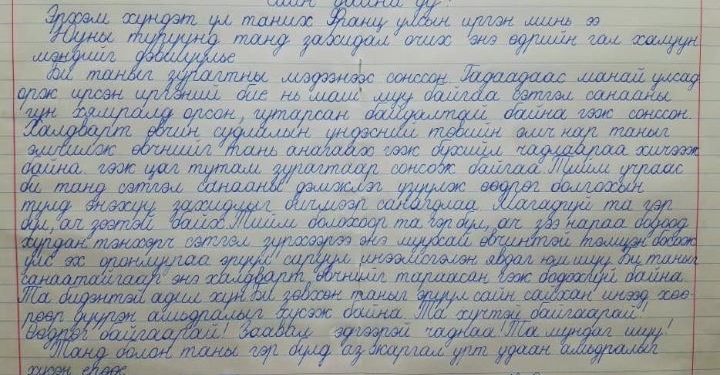 сайн байна уу?
Эрхэм хүндэт үл таних Франц улсын иргэн минь ээ
Юуны түрүүнд танд захидал очих энэ өдрийн гал халуун
мэндийг дэвшүүлье
Би таныг зурагтны мэдээнээс сонссон. Гадаадаас манай улсад
орж ирсэн иргэний бие нь маш муу байгаа сэтгэл санааны
гүн хямралд орсон, гутарсан байдалтай байна гэж сонссон.
Халдварт өвчин судлалын үндэсний төвийн эмч нар таныг
эмчилж өвчнийг тань анагаах гэж бүхийл чадлаараа хичээж
байна. гэж цаг тутам зурагтаар сонсож байгаа. Тийм учраас
би танд сэтгэл санааны дэмжлэг үзүүлж өөдрөг болгохын
тулд энэхүү захидлыг бичмээр санагдлаа. Магадгүй та гэр
бүл, ач зээтэй байх. Тийм болохоор та гэр бүл, ач зээ нараа бодоод
хурдан тэнхэрч сэтгэл зүрхээрээ энэ муухай өвчинтэй тэмцэн босож
эх орондуугаа эрүүл саруул инээмсэглэн явдал юм шүү би таныг
санаатайгаар энэ халдварт өвчнийг тараасан гэж бодохгүй байна.
Та бидэнтэй адил хүн би зөвхөн таныг эрүүл сайн сайхан инээд хөө-
рөөр дүүрэн амьдралыг хүсэж байна. Та хүчтэй байгаарай!
Өөдрөг байгаарай! Заавал эдгээрэй чаднаа! Та мундаг шүү!
Танд болон таны гэр бүлд аз жаргал урт удаан амьдралыг
хүсэн ерөөе